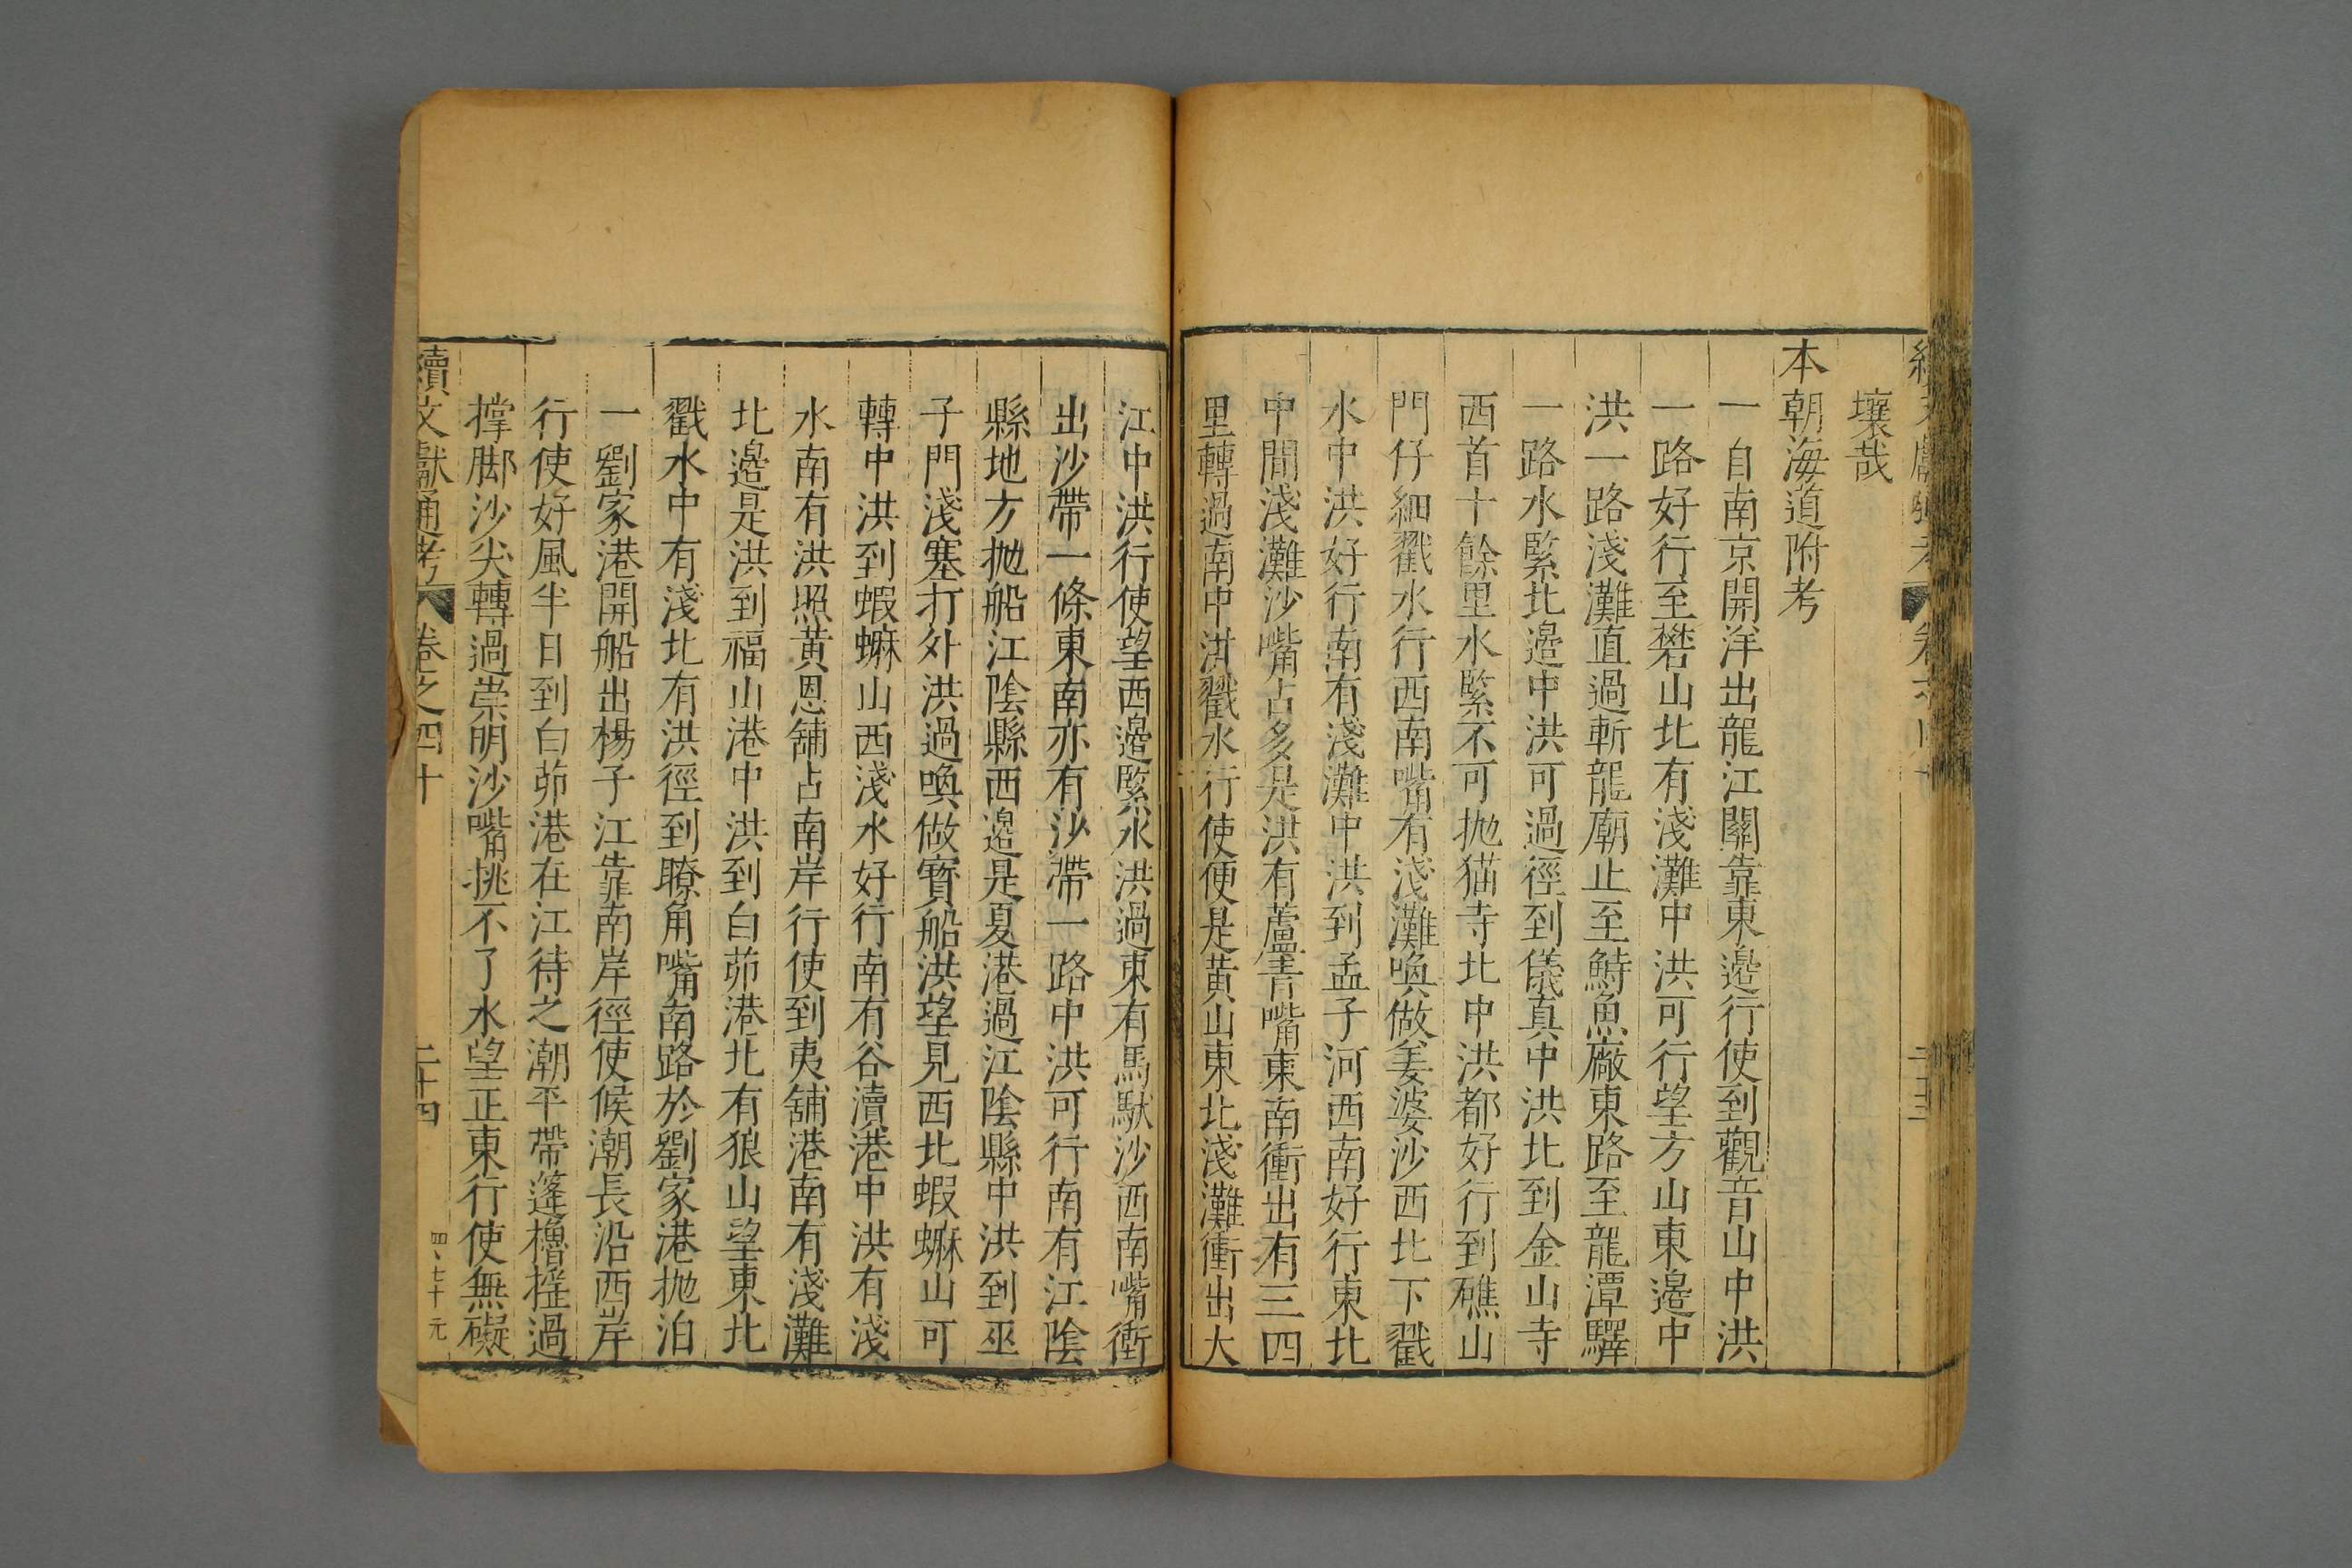 壤哉
本朝海道附考
一自南京開洋出龍江關靠東邉行使到觀音山中洪
一路好行至礬山北有淺灘中洪可行望方山東邉中
洪一路淺灘直過斬龍廟止至鰣魚廠東路至龍潭驛
一路水緊北邉中洪可過徑到儀真中洪北到金山寺
西首十餘里水緊不可抛猫寺北中洪都好行到礁山
門仔細戳水行西南嘴有淺灘喚做姜婆沙西北下戳
水中洪好行南有淺灘中洪到孟子河西南好行東北
中間淺灘沙嘴占多是洪有蘆青嘴東南衝出有三四
里轉過南中洪戳水行使便是黃山東北淺灘衝出大
江中洪行使望西邉緊水洪過東有馬䭾沙西南嘴衝
出沙帶一條東南亦有沙帶一路中洪可行南有江陰
縣地方抛船江陰縣西邉是夏港過江陰縣中洪到巫
子門淺塞打外洪過喚做寳船洪望見西北蝦蟆山可
轉中洪到蝦蟆山西淺水好行南有谷瀆港中洪有淺
水南有洪照黃恩舖占南岸行使到夷舖港南有淺灘
北邉是洪到福山港中洪到白茆港北有狼山望東北
戳水中有淺北有洪徑到瞭角嘴南路於劉家港抛泊
一劉家港開船出楊子江靠南岸徑使候潮長沿西岸
行使好風半日到白茆港在江待之潮平帶篷櫓搖過
撑脚沙尖轉過崇明沙嘴挑不了水望正東行使無礙
續文獻通考 卷之四十 二十四